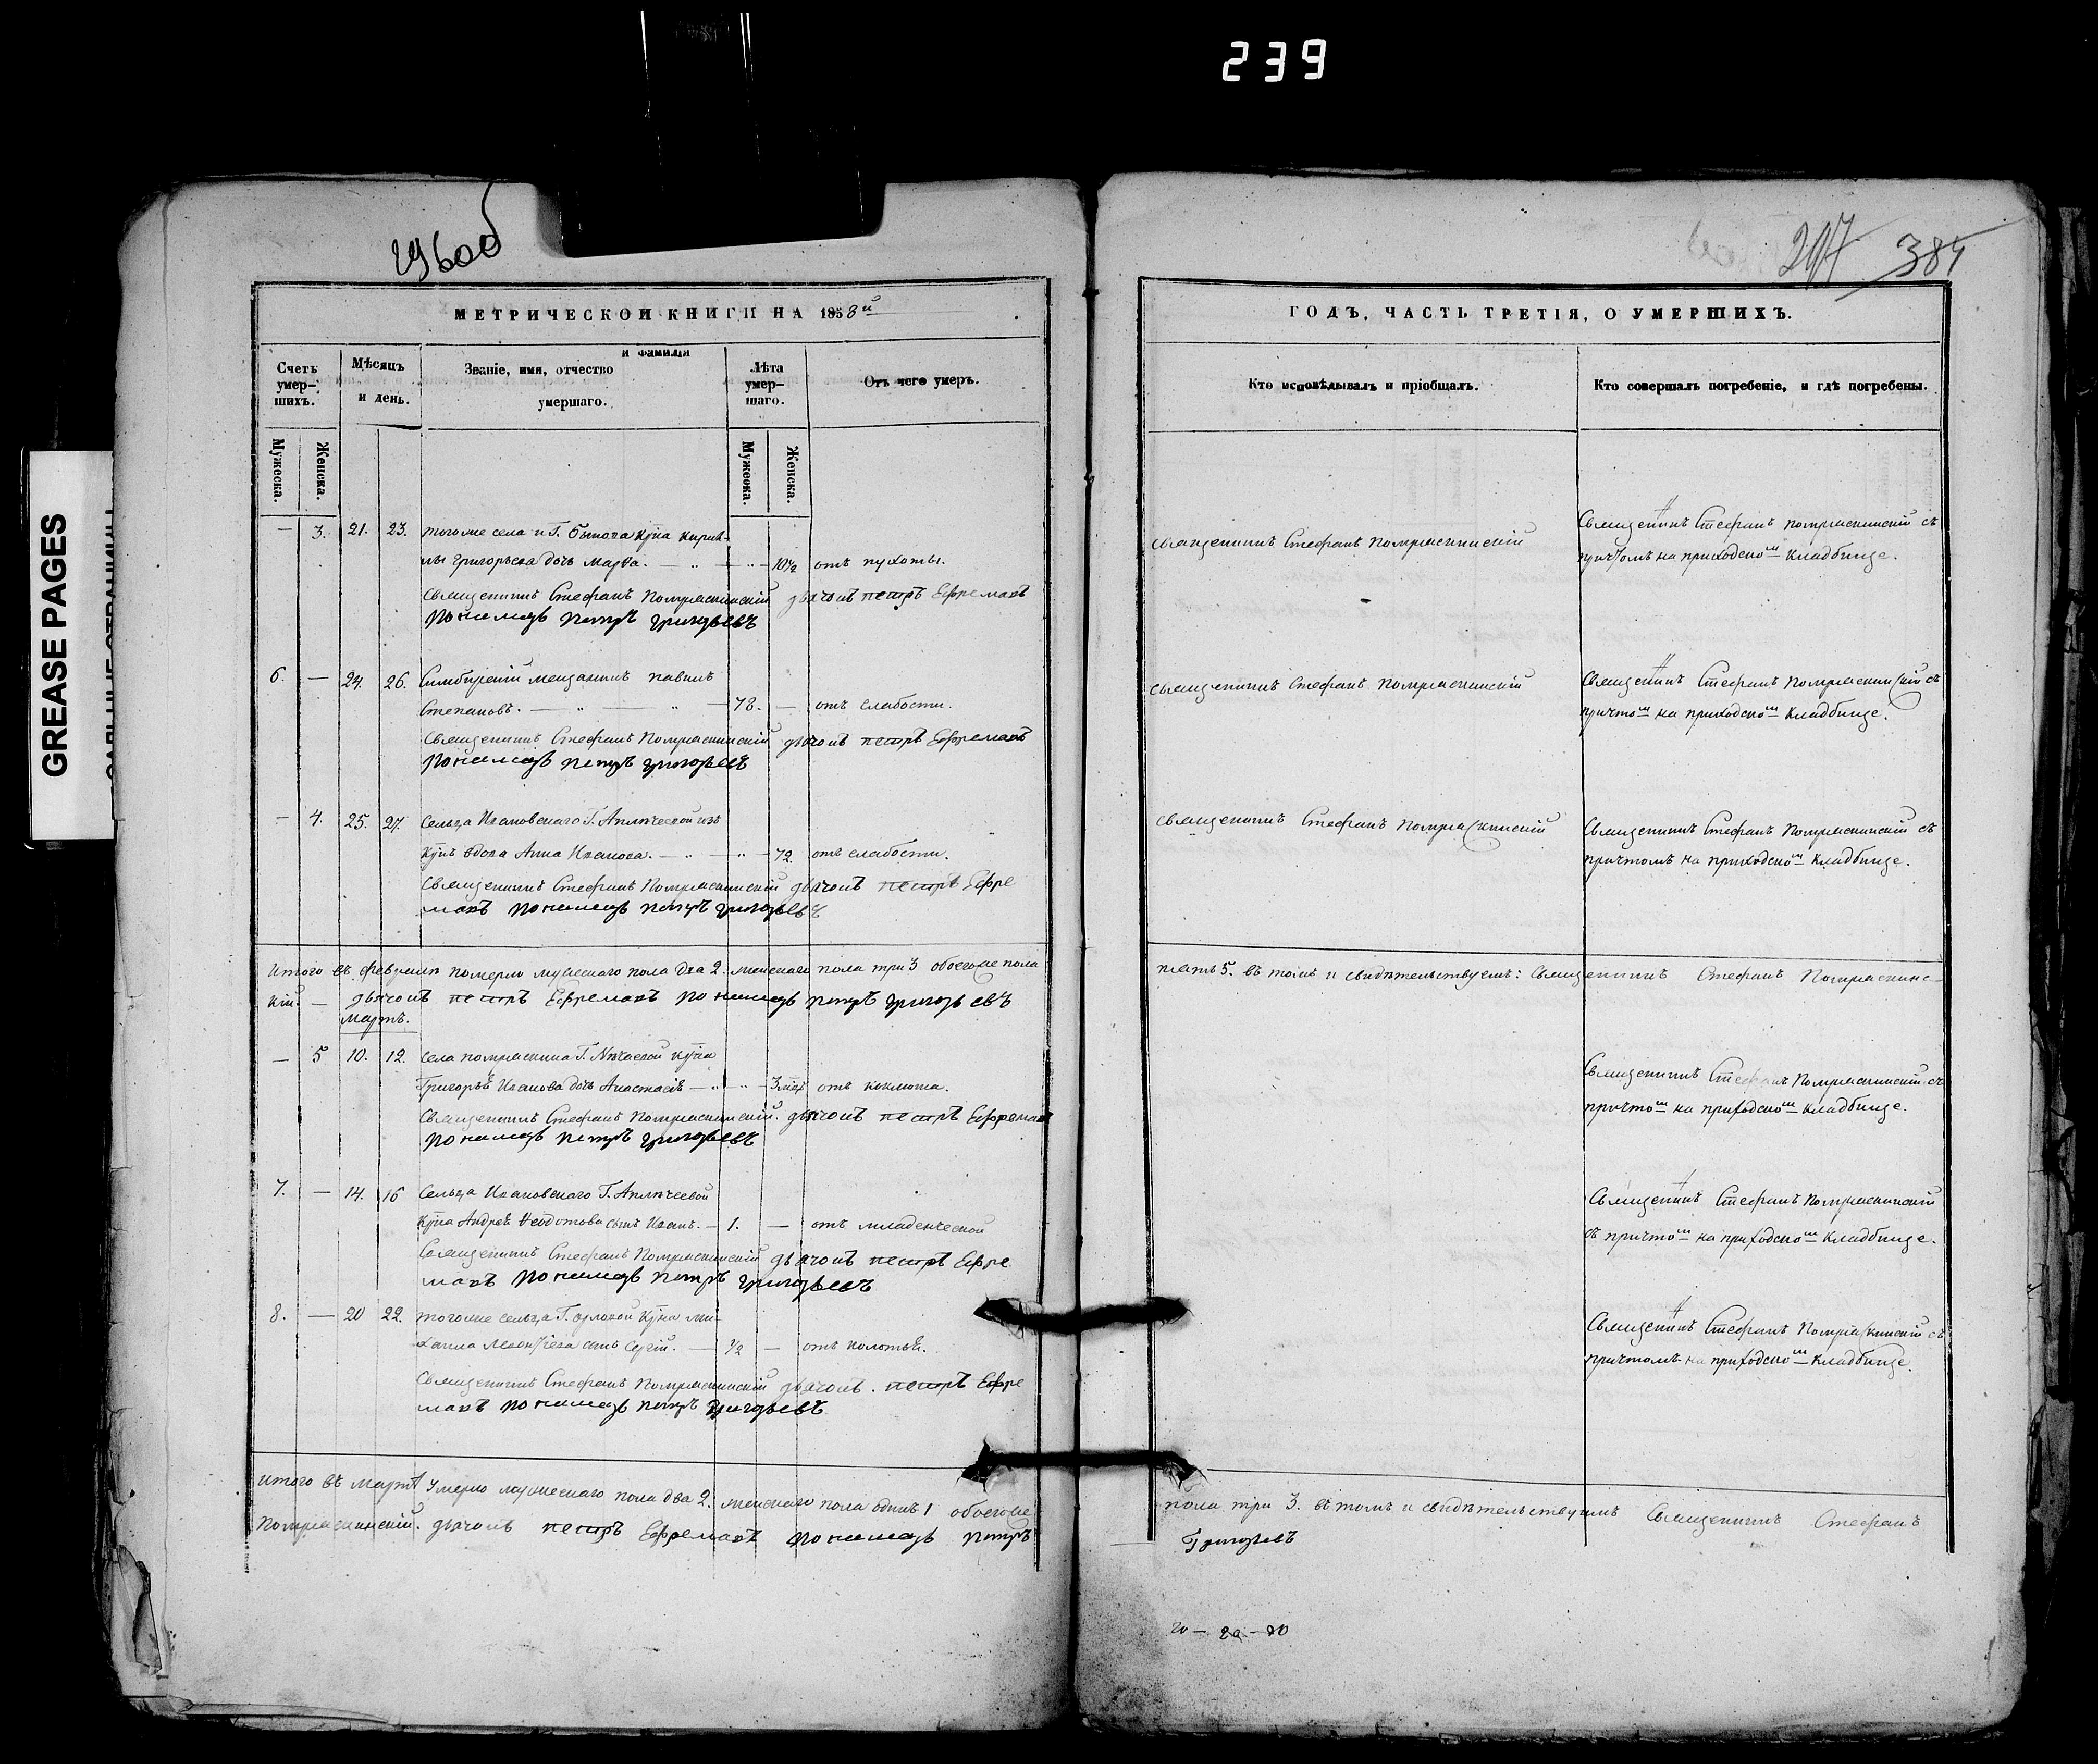 239
GREASE PAGES
296 об
297 384
МЕТРИЧЕСКОЙ КНИГИ НА 1858й
Счетъ умер-шихъ.
Мѣсяцъ и день.
Званіе, имя, отчество и фамилія умершаго.
Лѣта умер-шаго.
Отъ чего умеръ.
Мужеска. Женска. Мужеска. Женска.
— 3. 21. 23. тогоже села и Г. Кирил-
лы Григорьева дочь Марѳа. — „ — „ — 10½ отъ сухоты.
Священникъ Стефанъ Потряскинскій дьячокъ петръ Ефремовъ
Пономарь петръ григорьевъ
6. — 24. 26. Симбирскій мещанинъ павилъ
Степановъ. — „ — „ — 78. — отъ слабости.
Священникъ Стефанъ Потряскинскій дьячокъ петръ Ефремовъ
Пономарь петръ григорьевъ
— 4. 25. 27. Сельца Ивановскаго Г.
вдова Анна Иванова. — „ — „ — 72. отъ слабости.
Священникъ Стефанъ Потряскинскій дьячокъ петръ Ефре
мовъ пономарь петръ григорьевъ
Итого въ феврали померло мужескаго пола два 2. женскаго пола три 3 обоегоже пола
кій. — дьячокъ петръ Ефремовъ пономарь петръ григорьевъ
Мартъ.
— 5 10. 12. Села потряскина Г.
Григорья Иванова дочь Анастасія — „ — „ — 3 отъ коклюша.
Священникъ Стефанъ Потряскинскій. дьячокъ петръ Ефремовъ
Пономарь петръ григорьевъ
7. — 14. 16 Сельца Ивановскаго Г.
Андрея Ѳедотова сынъ Иванъ. — 1. — отъ младенческой
Священникъ Стефанъ Потряскинскій дьячокъ петръ Ефре
мовъ пономарь петръ григорьевъ
8. — 20 22. тогоже сельца Г. орловой ми-
хаила сынъ Сергій. — ½ — отъ колотья.
Священникъ Стефанъ Потряскинскій дьячокъ. петръ Ефре
мовъ пономарь петръ григорьевъ
итого въ мартѣ умерло мужескаго пола два 2. женскаго пола одинъ 1 обоегоже
Потряскинскій. дьячокъ петръ Ефремовъ пономарь петръ
ГОДЪ, ЧАСТЬ ТРЕТІЯ, О УМЕРШИХЪ.
Кто исповѣдывалъ и пріобщалъ.
Кто совершалъ погребеніе, и гдѣ погребены.
священникъ Стефанъ Потряскинскій
Священникъ Стефанъ потряскинскій съ
причтомъ на приходскомъ кладбище.
священникъ Стефанъ Потряскинскій
Священникъ Стефанъ Потряскинскій съ
причтомъ на приходскомъ кладбище.
священникъ Стефанъ Потряскинскій
Священникъ Стефанъ Потряскинскій съ
причтомъ на приходскомъ кладбище.
пять 5. въ томъ и свидѣтельствуемъ: Священникъ Стефанъ Потряскинс-
Священникъ Стефанъ Потряскинскій съ
причтомъ на приходскомъ кладбище.
Священникъ Стефанъ Потряскинскій
съ причтомъ на приходскомъ кладбище.
Священникъ Стефанъ Потряскинскій съ
причтомъ на приходскомъ кладбище.
пола три 3. въ томъ и свидѣтельствуемъ Священникъ Стефанъ
Григорьевъ